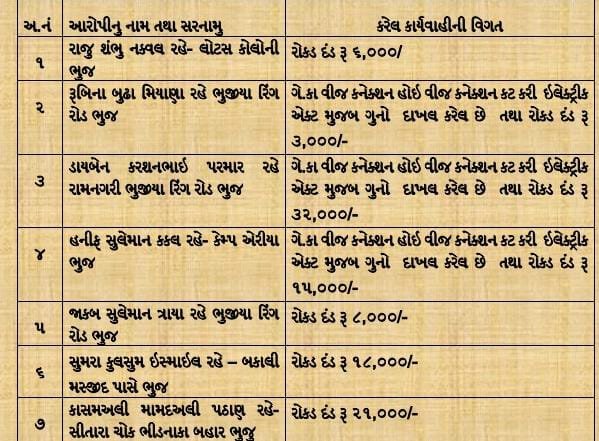 અ.નં આરોપીનુ નામ તથા સરનામુ કરેલ કાર્યવાહીની વિગત
૧ રાજુ શંભુ નક્વલ રહે- લોટસ કોલોની રોકડ દંડ રૂ ૬,૦૦૦/
ભુજ
૨ રૂબિના બુઢા મિયાણા રહે ભુજીયા રિંગ ગે.કા વીજ કનેક્શન હોઇ વીજ કનેક્શન કટ કરી ઇલેક્ટ્રીક
રોડ ભુજ એક્ટ મુજબ ગુનો દાખલ કરેલ છે તથા રોકડ દંડ રૂ
૩,૦૦૦/-
૩ ડાયબેન કરશનભાઇ પરમાર રહે ગે.કા વીજ કનેક્શન હોઇ વીજ કનેક્શન કટ કરી ઇલેક્ટ્રીક
રામનગરી ભુજીયા રિંગ રોડ ભુજ એક્ટ મુજબ ગુનો દાખલ કરેલ છે તથા રોકડ દંડ રૂ
૩૨,૦૦૦/-
૪ હનીફ સુલેમાન કકલ રહે- કેમ્પ એરીયા ગે.કા વીજ કનેક્શન હોઇ વીજ કનેક્શન કટ કરી ઇલેક્ટ્રીક
ભુજ એક્ટ મુજબ ગુનો દાખલ કરેલ છે તથા રોકડ દંડ રૂ
૧૫,૦૦૦/-
૫ જાકબ સુલેમાન ત્રાયા રહે ભુજીયા રિંગ રોકડ દંડ રૂ ૮,૦૦૦/-
રોડ ભુજ
૬ સુમરા કુલસુમ ઇસ્માઇલ રહે – બકાલી રોકડ દંડ રૂ ૧૮,૦૦૦/-
મસ્જીદ પાસે ભુજ
૭ કાસમઅલી મામદઅલી પઠાણ રહે- રોકડ દંડ રૂ ૨૧,૦૦૦/-
સીતારા ચોક ભીડનાકા બહાર ભુજ